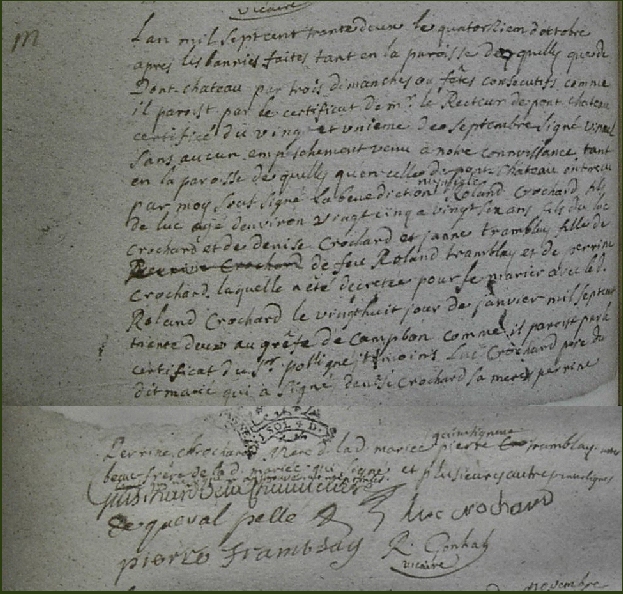 vicaire
M
L'an mil sept cent trente deux le quatorsiem d'octobre
apres les bannies faites tant en la paroisse de quilly que de
Pont-chateau par trois dimanches ou fêtes consecutifs comme
il paroist par le certificat de mr. le Recteur de pont chateau
certifice du vingt et unieme de septembre signé
sans aucun empechement venu à notre connoissance tant
en la paroisse de quilly qu'en celles de pont-chateau ont recu
par moy sous signé la benediction nuptialle Roland Crochard fils
de luc agé d'environ vingt cinq a vingt six ans fils du luc
Crochard et de denise Crochard et janne tramblay fille de
de feu Roland tramblay et de perrine
Crochard laquelle a été decretee pour se marier avec led.
Roland Crochard le vingt huit jour de janvier mil sept cent
trente deux au grêfe de Campbon comme il paroist par le
certificat du Sr. temoins Luc Crochard pere du
dit marié qui a signé denise Crochard sa mere perrine
Perrine Crochard mere de la d. mariee pierre tramblay
beau frere de la d. mariee qui signe et plusieurs autres
de queral pelle luc crochard
pierre tramblay R. Gonhah
vicaire
novembre